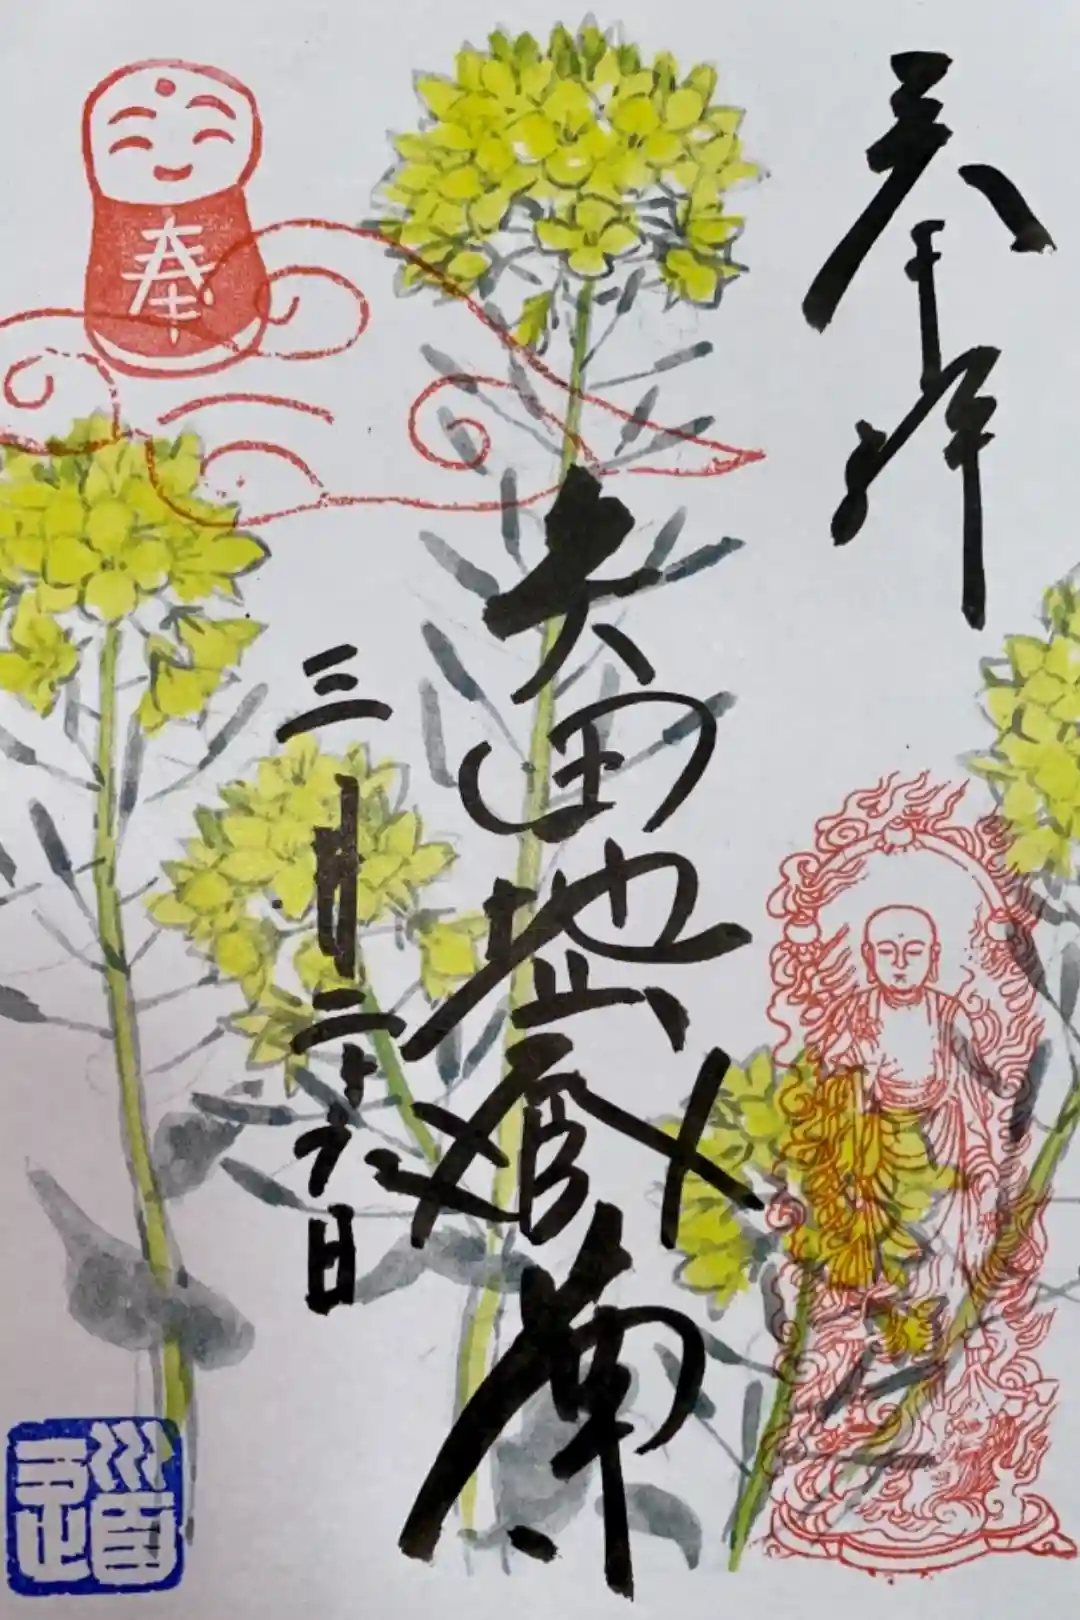 奉拝
大国地蔵
三月二十六日
奉
道